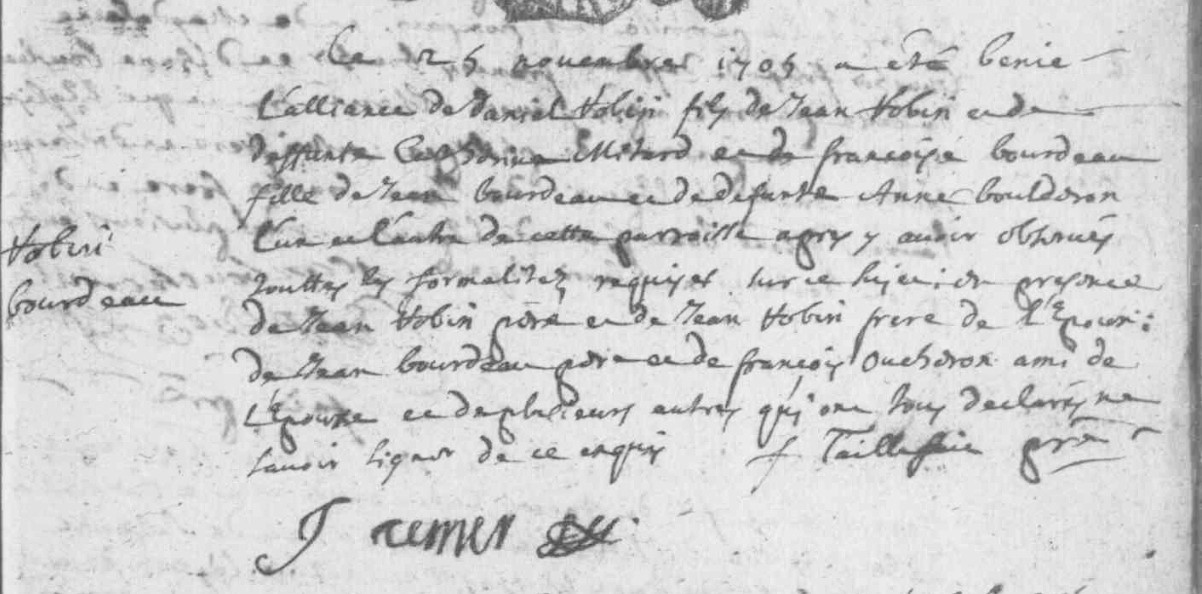 Ce 25 novembre 1705 a été benie
L'alliance de Daniel Hobin fils de Jean Hobin et de
deffunte Catherine Mitard et de françoise bourdeau
fille de Jean bourdeau et de defunte Anne bouldron
L'un et L'autre de cette parroisse apres y avoir observés
Hobin
touttes les formalitez requises sur ce sujet : en presence
bourdeau
de Jean Hobin père et de Jean Hobin frere de l'Epoux :
de Jean bourdeau pere et de françois Oucheron ami de
L'Epouze et de plusieurs autres qui ont tous declarés ne
savoir signer de ce enquis f Taillefaie
J